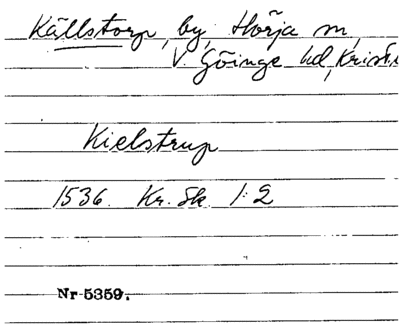 Källstorp, by, Hörja sn,
V. Göinge hd, Krist.
Kielstrup
1536. Kr. Sk. 1:2
Nr 5359.